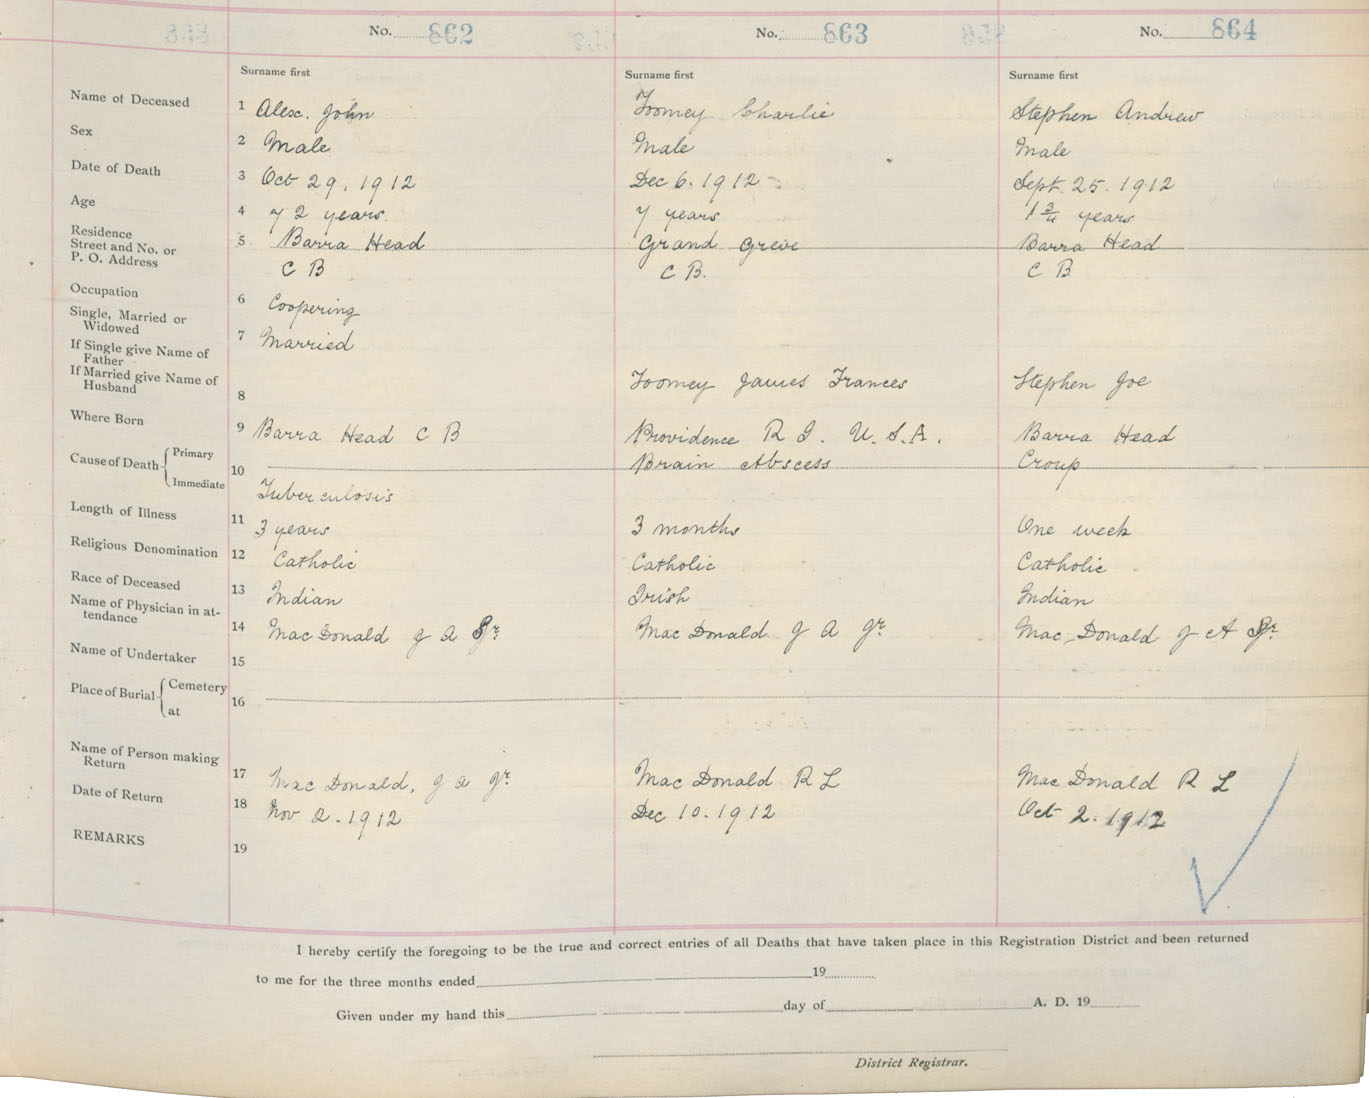 No. 862 No. 863 No. 864
Surname first Surname first Surname first
Name of Deceased 1 Alex. John Toomey Charlie Stephen Andrew
Sex 2 Male Male Male
Date of Death 3 Oct 29. 1912 Dec 6. 1912 Sept. 25. 1912
Age 4 72 years 7 years 1 3/4 years
Residence
Street and No. or 5 Barra Head Grand Greve Barra Head
P. O. Address C B C B. C B
Occupation 6 Coopering
Single, Married or
Widowed 7 Married
If Single give Name of
Father
If Married give Name of Toomey James Frances Stephen Joe
Husband 8
Where Born 9 Barra Head C B Providence R I. U. S. A. Barra Head
Cause of Death Primary Brain Abscess Croup
10
Immediate Tuberculosis
Length of Illness 11 3 years 3 months One week
Religious Denomination 12 Catholic Catholic Catholic
Race of Deceased 13 Indian Irish Indian
Name of Physician in at-
tendance 14 Mac Donald J A Jr. Mac Donald J A Jr. Mac Donald J A Jr.
Name of Undertaker 15
Place of Burial Cemetery
16
at
Name of Person making
Return 17 Mac Donald, J A Jr. Mac Donald R L Mac Donald R L
Date of Return 18 Nov 2. 1912 Dec 10. 1912 Oct 2. 1912
REMARKS 19
I hereby certify the foregoing to be the true and correct entries of all Deaths that have taken place in this Registration District and been returned
to me for the three months ended 19
Given under my hand this day of A. D. 19
District Registrar.